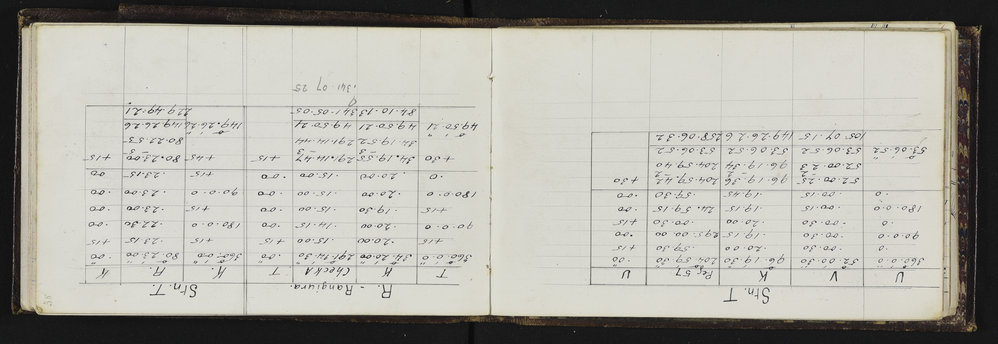 Stn. T
U V K Peg 57 U
360.0.0 52.00.30 96.19.30 204.59.30 .00
.0 .00.30 20.00 .59.30 +15
90.0.0 .00.30 .19.15 295.00.00 .00
.0 .00.30 20.00 00.30 +15
180.0.0 .00.15 .19.15 24.59.15 .00
.0 .00.15 .19.45 .59.30 .00
52.00.25 96.19.36 204.59.42 +30
52.00.23 96.19.34 204.59.40
53.06.52 53.06.52 53.06.52 53.06.52
105.07.15 149.26.26 258.06.32
R. - Rangiura. Stn. T.
T K Check A T K A. K
360.0.0 34.20.00 291.14.30 .00 360.00.0 80.23.00 .00
+15 .20.00 15.00 +15 +15 23.15 +15
90.0.0 .20.00 14.15 .00 180.0.0 .22.30 .00
+15 .19.30 .15.00 .00 +15 .23.00 .00
180.0.0 .20.00 .15.00 .00 90.0.0 .23.00 .00
.0 .20.00 .15.00 .00 +15 23.15 00
+30 34.19.55 291.14.47 +15 +45 80.23.00 +15
34.19.52 291.14.44 80.22.55
49.50.21 49.50.21 49.50.21 149.26.26 149.26.26
84.10.13 341.05.05 229.49.21
341 07 25